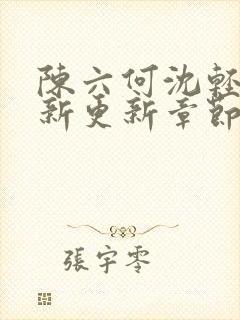 陳六何沈輕
新更新章節
張宇零